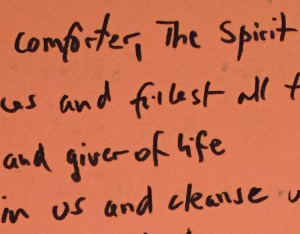 comforter, The Spirit
us and fillest all t
and giver of life
in us and cleanse u